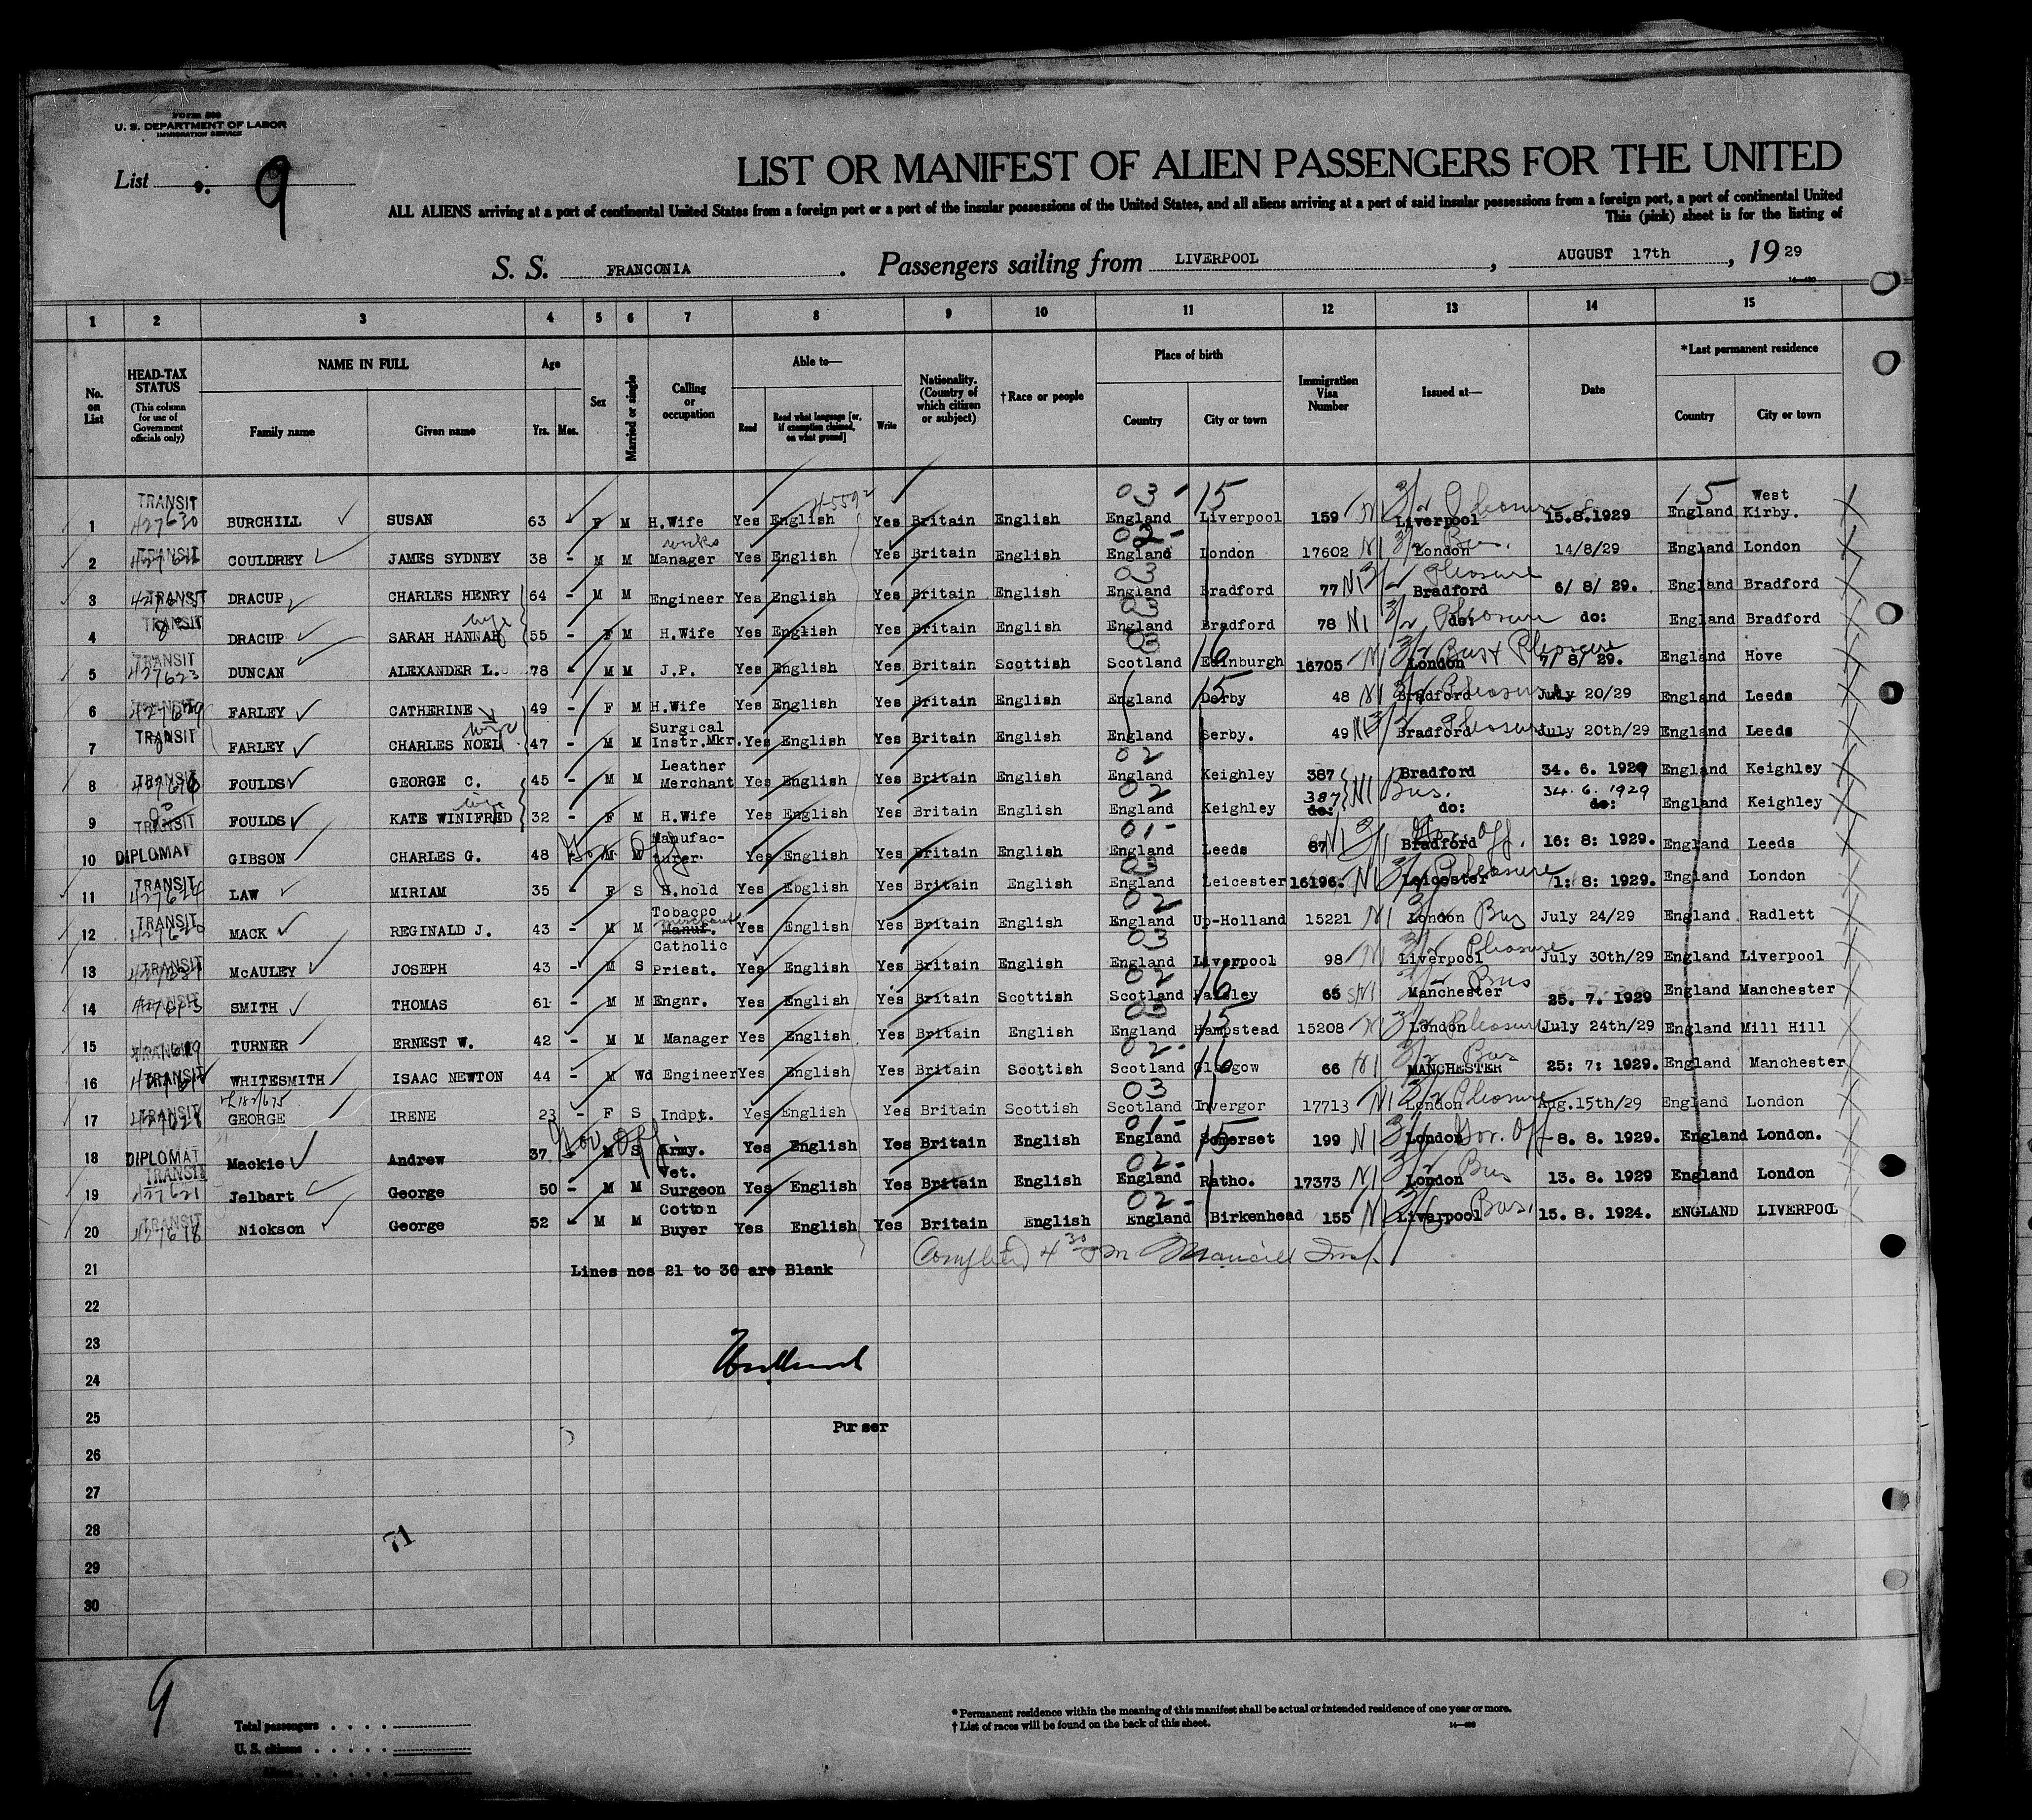 Form 500
U. S. DEPARTMENT OF LABOR
IMMIGRATION SERVICE
List 9. 9
LIST OR MANIFEST OF ALIEN PASSENGERS FOR THE UNITED
ALL ALIENS arriving at a port of continental United States from a foreign port or a port of the insular possessions of the United States, and all aliens arriving at a port of said insular possessions from a foreign port, a port of continental United
This (pink) sheet is for the listing of
S. S. FRANCONIA. Passengers sailing from LIVERPOOL, AUGUST 17th, 1929
1 2 3 4 5 6 7 8 9 10 11 12 13 14 15
No. on List
HEAD-TAX STATUS (This column for use of Government officials only)
NAME IN FULL Family name Given name
Age Yrs. Mos.
Sex
Married or single
Calling or occupation
Able to— Read Read what language [or, if exemption claimed, on what ground] Write
Nationality. (Country of which citizen or subject)
†Race or people
Place of birth Country City or town
Immigration Visa Number
Issued at—
Date
*Last permanent residence Country City or town
1 TRANSIT 427630 BURCHILL SUSAN 63 F M H.Wife Yes English Yes Britain English 03 England 15 Liverpool 159 N1 3/2 Liverpool Pleasure 15.8.1929 15 England West Kirby.
2 TRANSIT COULDREY JAMES SYDNEY 38 - M M works Manager Yes English Yes Britain English 02- England London 17602 N1 3/2 London Bus. 14/8/29 England London
3 TRANSIT DRACUP CHARLES HENRY 64 - M M Engineer Yes English Yes Britain English 03 England Bradford 77 N1 3/2 Bradford Pleasure 6/ 8/ 29. England Bradford
4 TRANSIT DRACUP SARAH HANNAH wife 55 - F M H.Wife Yes English Yes Britain English 03 England Bradford 78 N1 3/2 do: Pleasure do: England Bradford
5 TRANSIT 427623 DUNCAN ALEXANDER L. 78 - M M J.P. Yes English Yes Britain Scottish 03 Scotland 16 Edinburgh 16705 N1 3/2 London Bus & Pleasure 7/ 8/ 29. England Hove
6 TRANSIT FARLEY CATHERINE 49 - F M H.Wife Yes English Yes Britain English England 15 Derby 48 N1 3/2 Bradford Pleasure July 20/29 England Leeds
7 TRANSIT FARLEY CHARLES NOEL wife 47 - M M Surgical Instr.Mkr. Yes English Yes Britain English England Derby. 49 N1 3/2 Bradford Pleasure July 20th/29 England Leeds
8 TRANSIT FOULDS GEORGE C. 45 - M M Leather Merchant Yes English Yes Britain English 02 England Keighley 387 Bradford 34. 6. 1929 England Keighley
9 TRANSIT FOULDS KATE WINIFRED wife 32 - F M H.Wife Yes English Yes Britain English 02 England Keighley 387 do: N1 Bus. do: 34. 6. 1929 do: England Keighley
10 DIPLOMAT GIBSON CHARLES G. 48 Gov. Off M M Manufacturer. Yes English Yes Britain English 01- England Leeds 67 N1 3/1 Bradford Gov. Off. 16: 8: 1929. England Leeds
11 TRANSIT 427624 LAW MIRIAM 35 F S H.hold Yes Eoglish Yes Britain English 03 England Leicester 16196. N1 3/2 Leicester Pleasure 1: 8: 1929. England London
12 TRANSIT MACK REGINALD J. 43 - M M Tobacco merchant Manuf. Yes English Yes Britain English 02 England Up-Holland 15221 N1 3/2 London Bus July 24/29 England Radlett
13 TRANSIT McAULEY JOSEPH 43 - M S Catholic Priest. Yes English Yes Britain English 03 England Liverpool 98 N1 3/2 Liverpool Pleasure July 30th/29 England Liverpool
14 TRANSIT SMITH THOMAS 61 - M M Engnr. Yes English Yes Britain Scottish 02 Scotland 16 Paisley 65 N1 3/2 Manchester Bus 25. 7. 1929 England Manchester
15 TRANSIT TURNER ERNEST W. 42 - M M Manager Yes English Yes Britain English 03 England 15 Hampstead 15208 N1 3/2 London Pleasure July 24th/29 England Mill Hill
16 TRANSIT WHITESMITH ISAAC NEWTON 44 - M Wd Engineer Yes English Yes Britain Scottish 02- Scotland 16 Glasgow 66 N1 3/2 MANCHESTER Bus 25: 7: 1929. England Manchester
17 TRANSIT 427628 GEORGE IRENE 23 - F S Indpt. Yes English Yes Britain Scottish 03 Scotland Invergor 17713 N1 3/2 London Pleasure Aug.15th/29 England London
18 DIPLOMAT Mackie Andrew 37 Gov. Off M S Army. Yes English Yes Britain English 01- England 15 Somerset 199 N1 3/1 London Gov. Off 8. 8. 1929. England London.
19 TRANSIT 427621 Jelbart George 50 - M M Vet. Surgeon Yes English Yes Britain English 02- England Ratho. 17373 N1 3/2 London Bus 13. 8. 1929 England London
20 TRANSIT 427618 Nickson George 52 - M M Cotton Buyer Yes English Yes Britain English 02- England Birkenhead 155 N1 Liverpool Bus. 15. 8. 1924. ENGLAND LIVERPOOL
21 Lines nos 21 to 30 are Blank Completed 4 30 pm Insp.
22
23
24
25 Purser
26
27
28 71
29
30
9
Total passengers
U. S. citizens
Aliens
* Permanent residence within the meaning of this manifest shall be actual or intended residence of one year or more.
† List of races will be found on the back of this sheet.